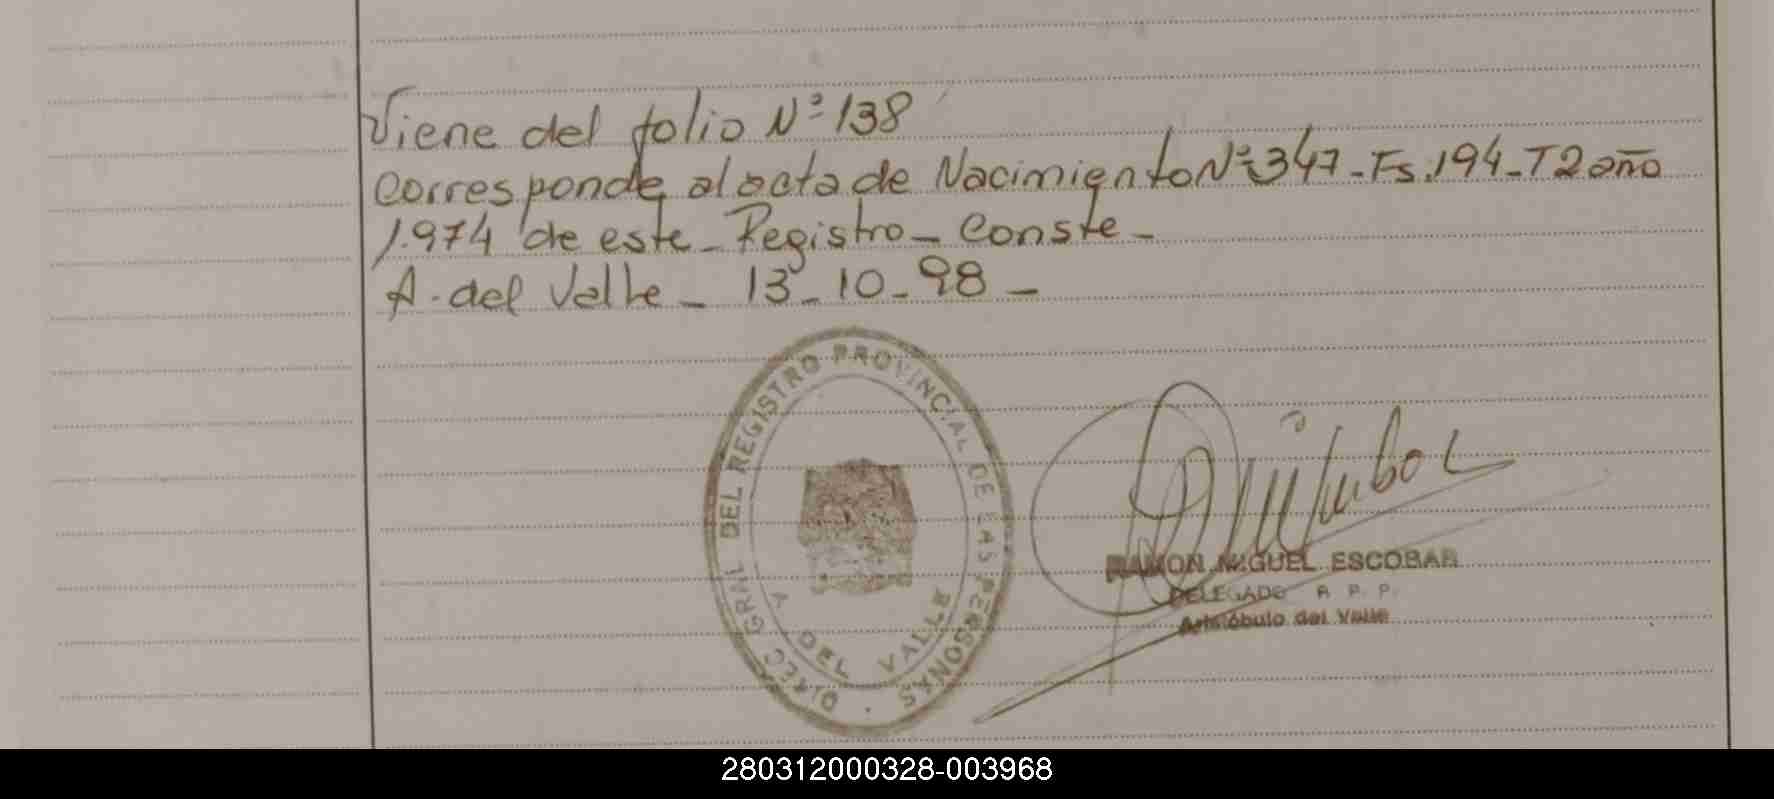 Viene del folio Nº 138
Corresponde al acta de Nacimiento Nº 347 - Fs. 194 - T2 año
1.974 de este - Registro - Conste -
A. del Valle - 13 - 10 - 98 -
DIREC. GRAL DEL REGISTRO PROVINCIAL DE LAS PERSONAS
A DEL VALLE
RAMON MIGUEL ESCOBAR
DELEGADO R. P. P.
Aristóbulo del Valle
280312000328-003968